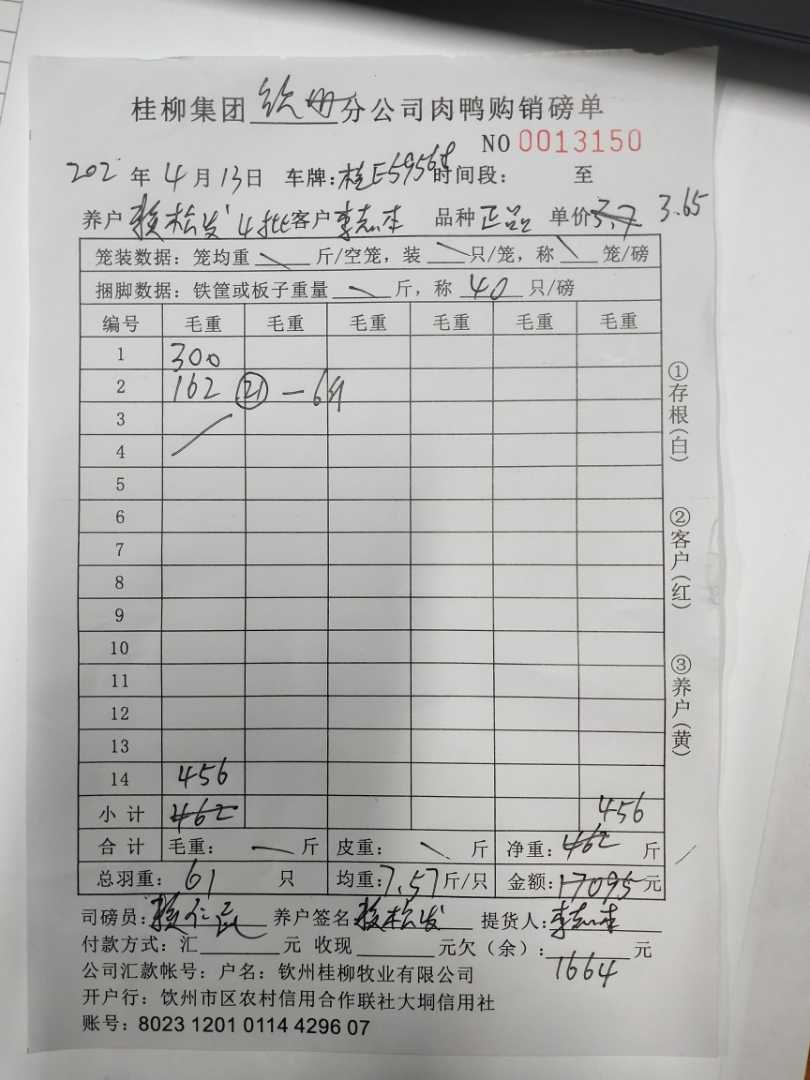 桂柳集团 钦州 分公司肉鸭购销磅单
NO 0013150
202 年 4 月 13 日 车牌：桂E5956 时间段： 至
养户 赖松发 4批 客户 李志本 品种 正品 单价 3.7 3.65
笼装数据：笼均重 斤/空笼，装 只/笼，称 笼/磅
捆脚数据：铁筐或板子重量 斤，称 40 只/磅
编号 毛重 毛重 毛重 毛重 毛重 毛重
1 300
2 162 ㉑ －6斤
3
4
5
6
7
8
9
10
11
12
13
14 456
小 计 462 456
合 计 毛重： 斤 皮重： 斤 净重：462 斤
总羽重：61 只 均重：7.57 斤/只 金额：17095 元
司磅员：赖 养户签名 赖松发 提货人：李志本
付款方式：汇 元 收现 元欠（余）： 元
1664
公司汇款帐号：户名：钦州桂柳牧业有限公司
开户行：饮州市区农村信用合作联社大垌信用社
账号：8023 1201 0114 4296 07
①存根（白）
②客户（红）
③养户（黄）